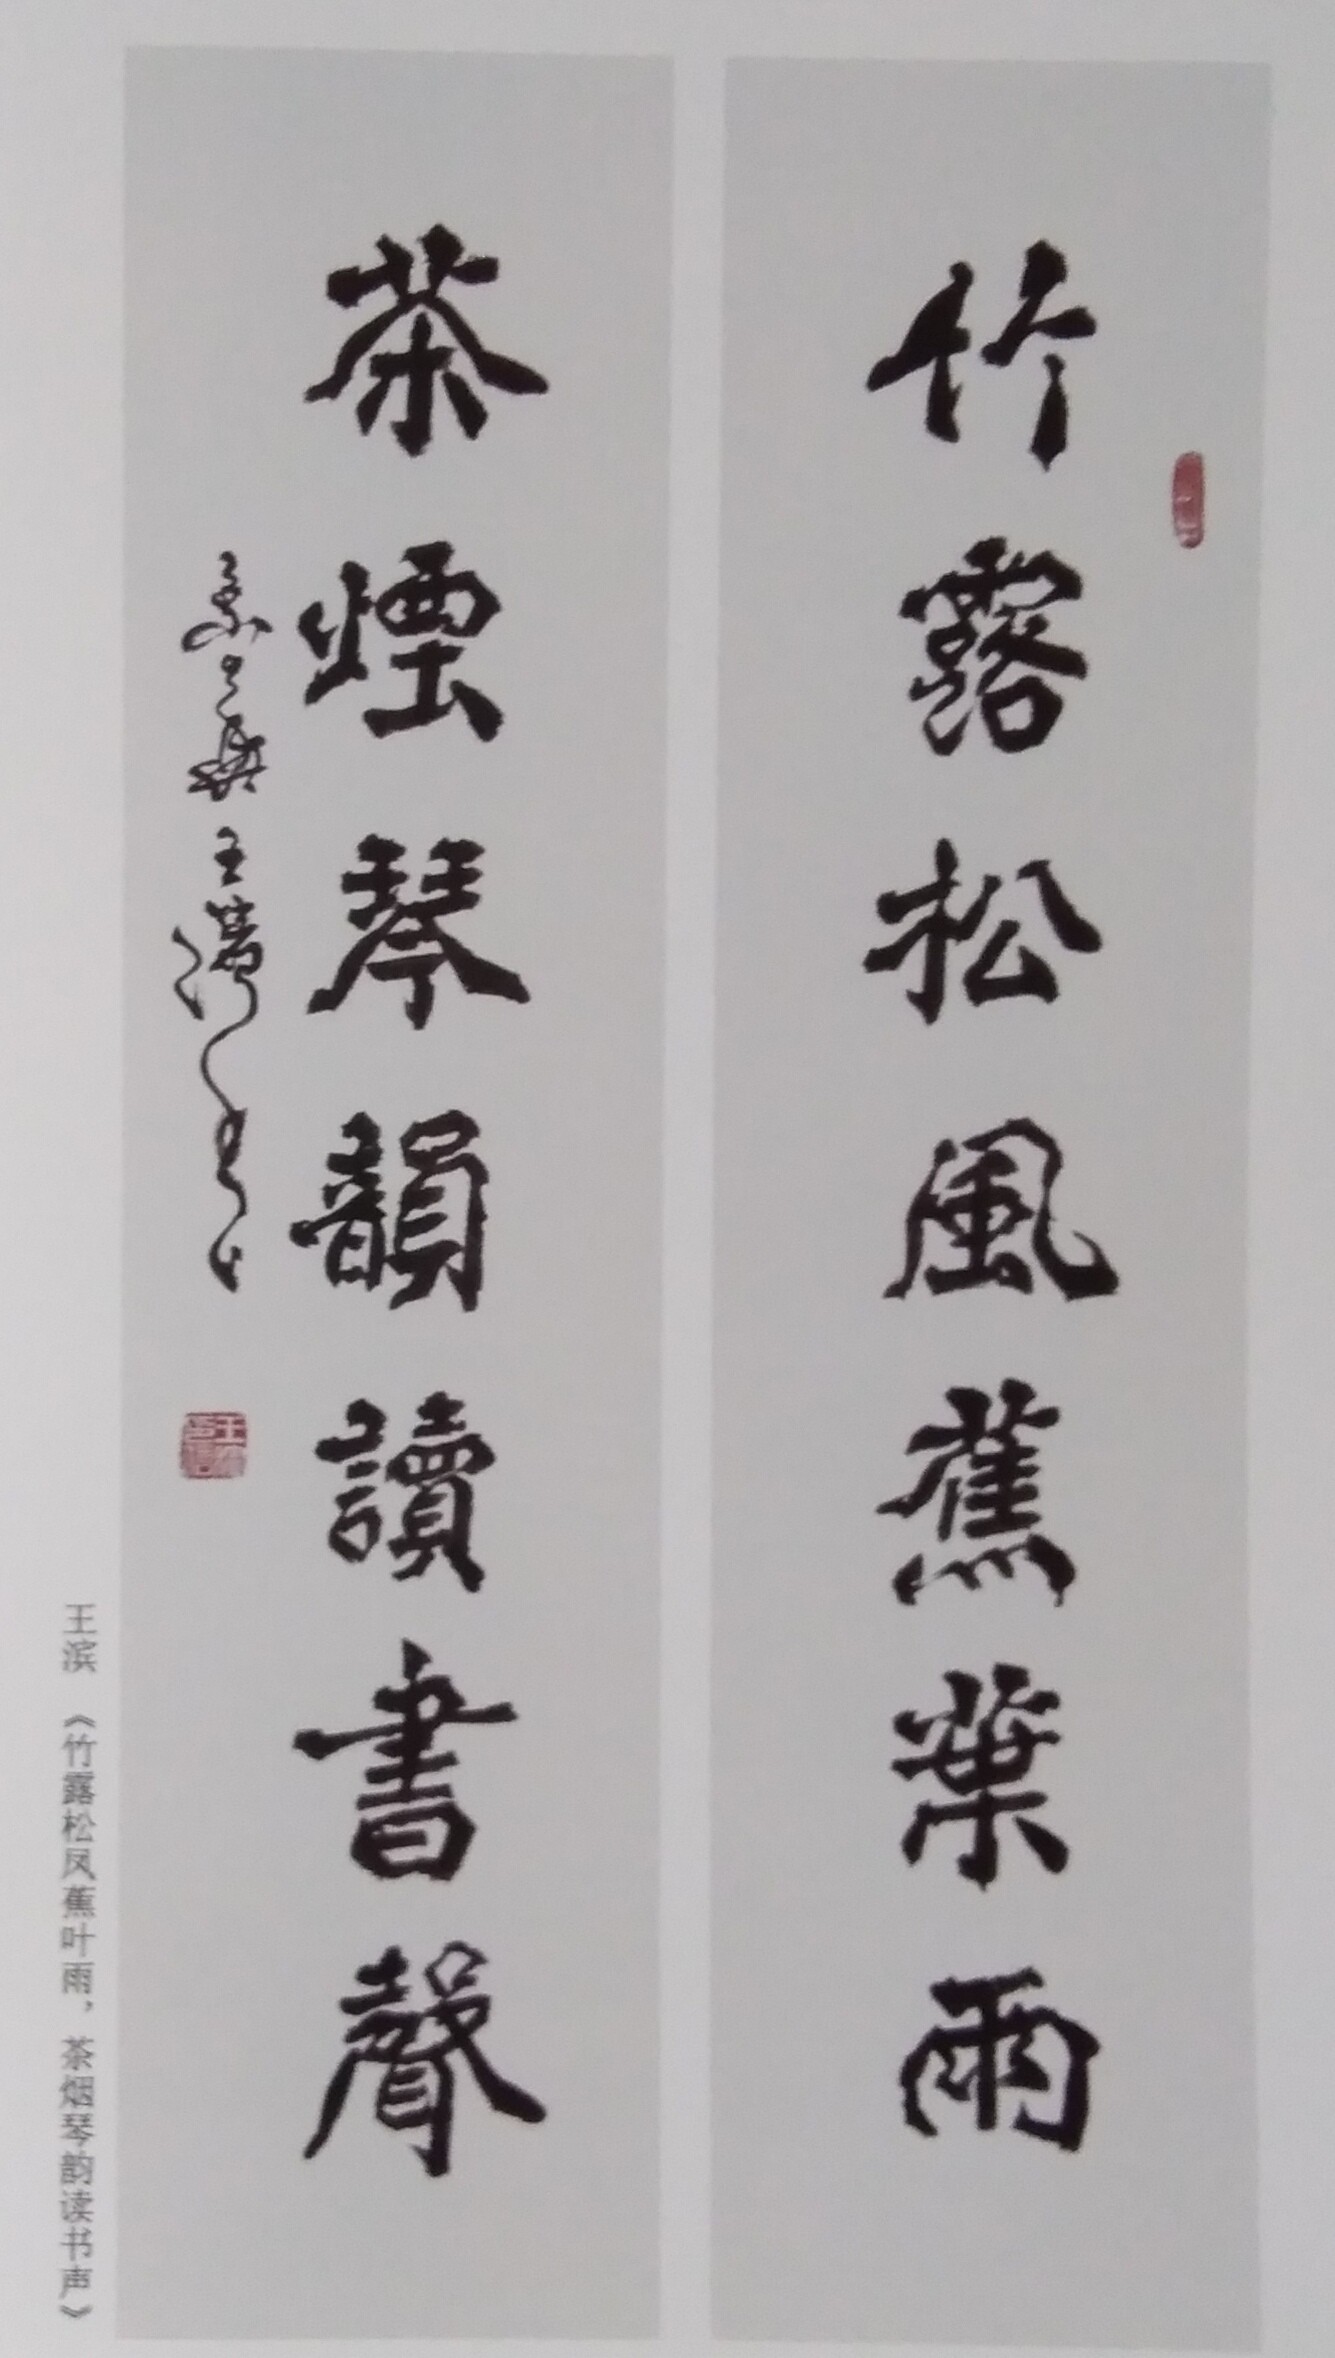 竹露松風蕉葉雨
茶煙琴韻讀書聲
王滨《竹露松风蕉叶雨，茶烟琴韵读书声》